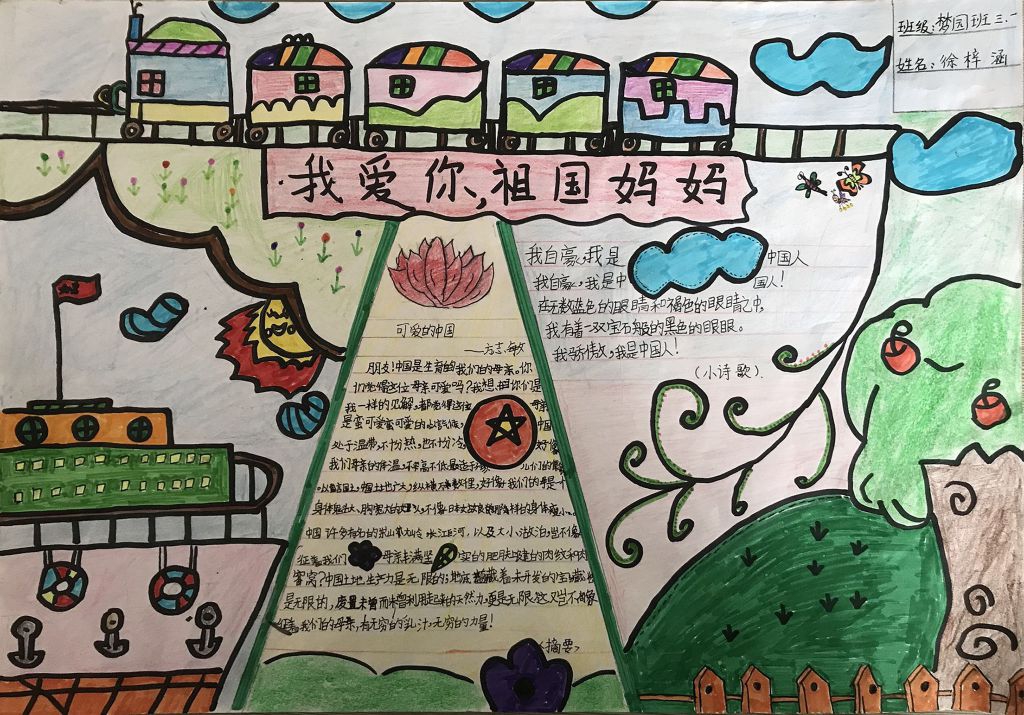 班级:梦园班三.一
姓名:徐梓涵
我爱你,祖国妈妈
我自豪,我是中国人
我自豪,我是中国人!
在无数蓝色的眼睛和褐色的眼睛之中,
我有着一双宝石般的黑色的眼眼。
我骄傲,我是中国人!
(小诗歌).
可爱的中国
——方志敏
朋友!中国是生育的我们的母亲。你
们觉得这位母亲可爱吗?我想,你们是
我一样的见解,都觉得这位母亲
是蛮可爱蛮可爱的
中国
处于温带,不十分热,也不十分冷,好像
我们母亲的体温,不高不低最适
国土地广大,纵横万数里,好像我们的母亲是一个
中国许多有名的崇山大岭,长江巨河,以及大小湖泊,岂不像
征着我们母亲丰满坚实的肥肤上健的肉纹和肉
窝?中国土地生产力是无限的;地底蕴藏着未开发的宝藏也
是无限的,废置未曾利用起来的天然力,更是无限,这又岂不像
征着我们的母亲,有无穷的乳汁,无穷的力量!
<摘要>